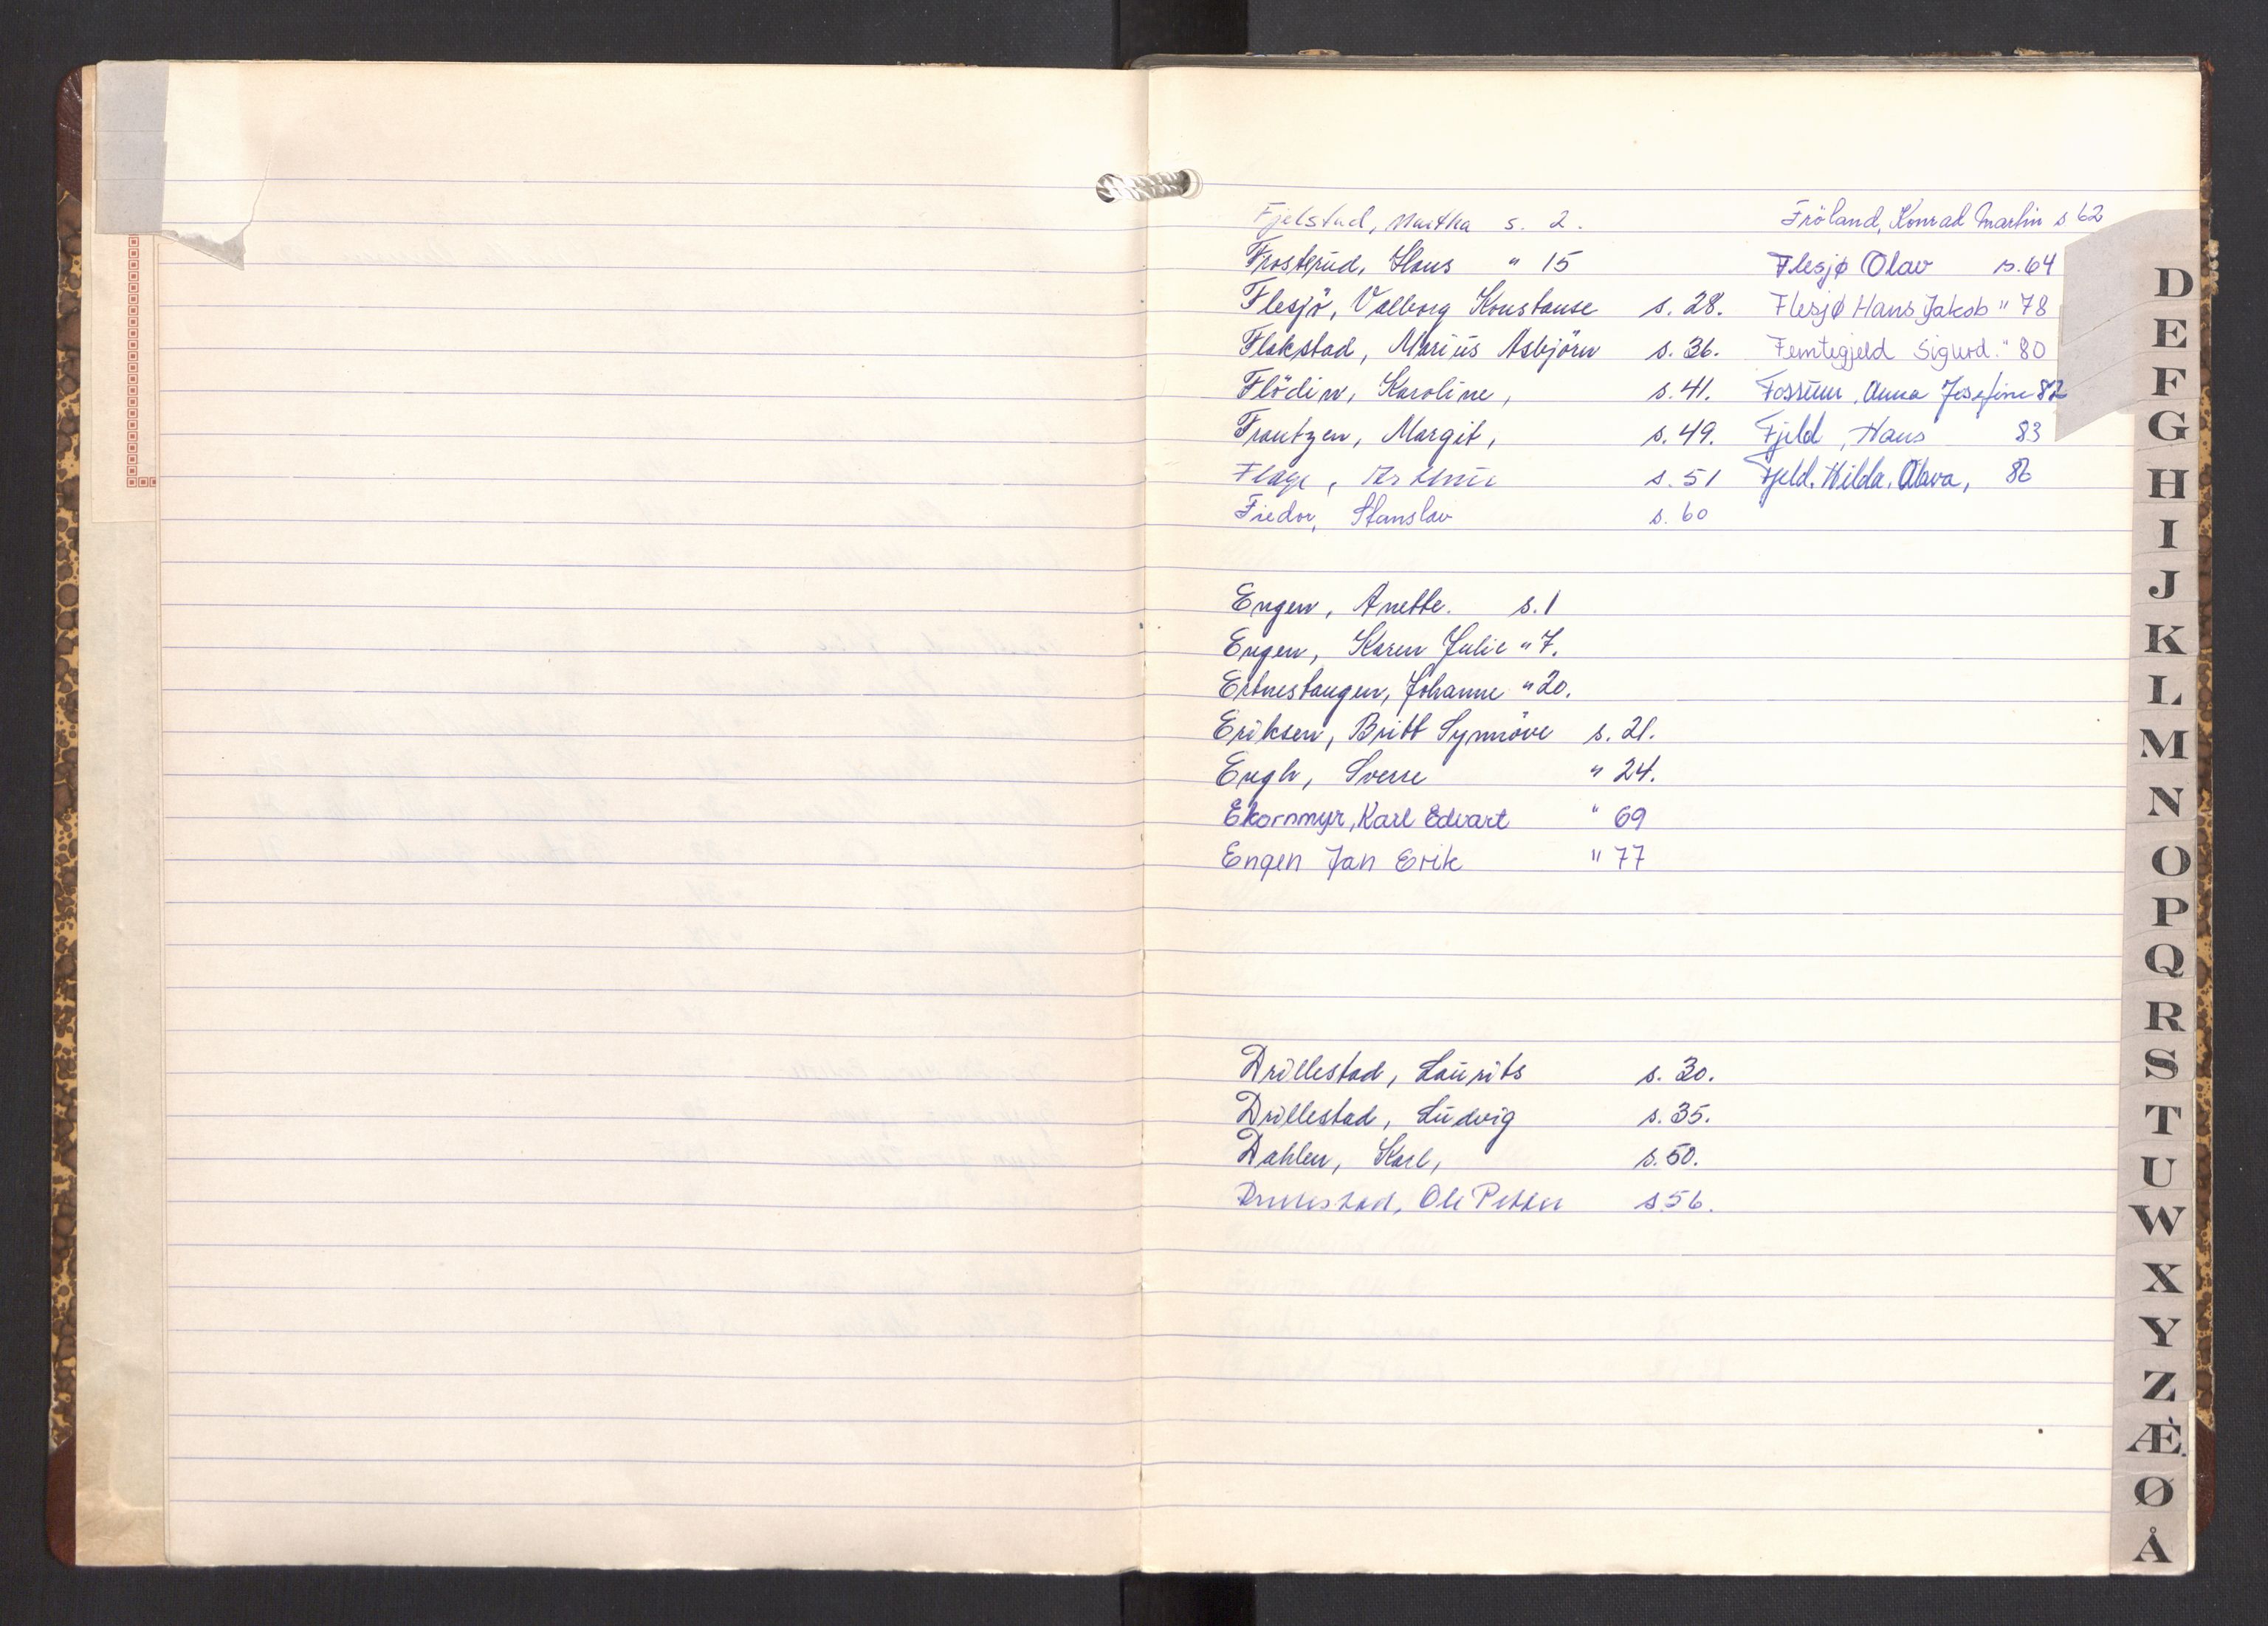 Fjelstad, Martha s. 2.
Frosterud, Hans " 15
Flesjö, Valborg Konstanse s. 28.
Flakstad, Marius Asbjörn s. 36.
Flödin, Karoline, s. 41.
Frantzen, Margit, s. 49.
Flage, s. 51
Fiedor, Stanslav s. 60
Fröland, Konrad Martin s 62
Flesjø Olav s. 64
Flesjø Hans Jakob " 78
Femtegjeld Sigurd. " 80
Fossum, Anna Josefine 82
Fjeld, Hans 83
Fjeld. Hilda. Olava, 86
Engen, Anette. s. 1
Engen, Karen Julie " 7.
Ertnestangen, Johanne " 20.
Eriksen, Britt Synnöve s. 21.
Engh, Sverre " 24.
Ekornmyr, Karl Edvart " 69
Engen Jan Erik " 77
Drillestad, Laurits s. 30.
Drillestad, Ludvig s. 35.
Dahlen, Karl, s. 50.
Drillestad, Ole Petter s. 56.
D
E
F
G
H
I
J
K
L
M
N
O
P
Q
R
S
T
U
W
X
Y
Z
Æ
Ø
Å